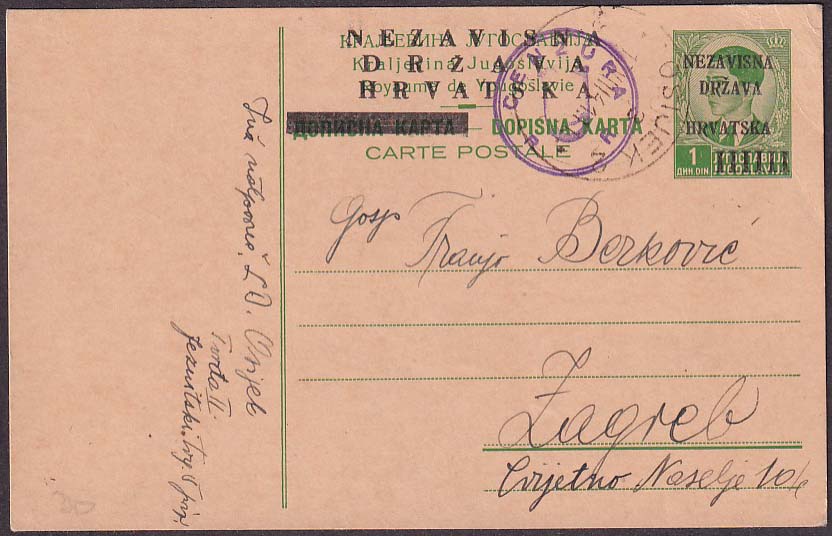 NEZAVISNA
DRŽAVA
HRVATSKA
КРАЉЕВИНА ЈУГОСЛАВИЈА
Kraljevina Jugoslavija
Royaume de Yougoslavie
ДОПИСНА КАРТА — DOPISNA KARTA
CARTE POSTALE
CENZURA
OSIJEK
NEZAVISNA
DRŽAVA
HRVATSKA
1
ДИН DIN
ЈУГОСЛАВИЈА
JUGOSLAVIJA
Gosp
Franjo Berković
Zagreb
Cvjetno Naselje 104
Osijek
Tvrđa II.